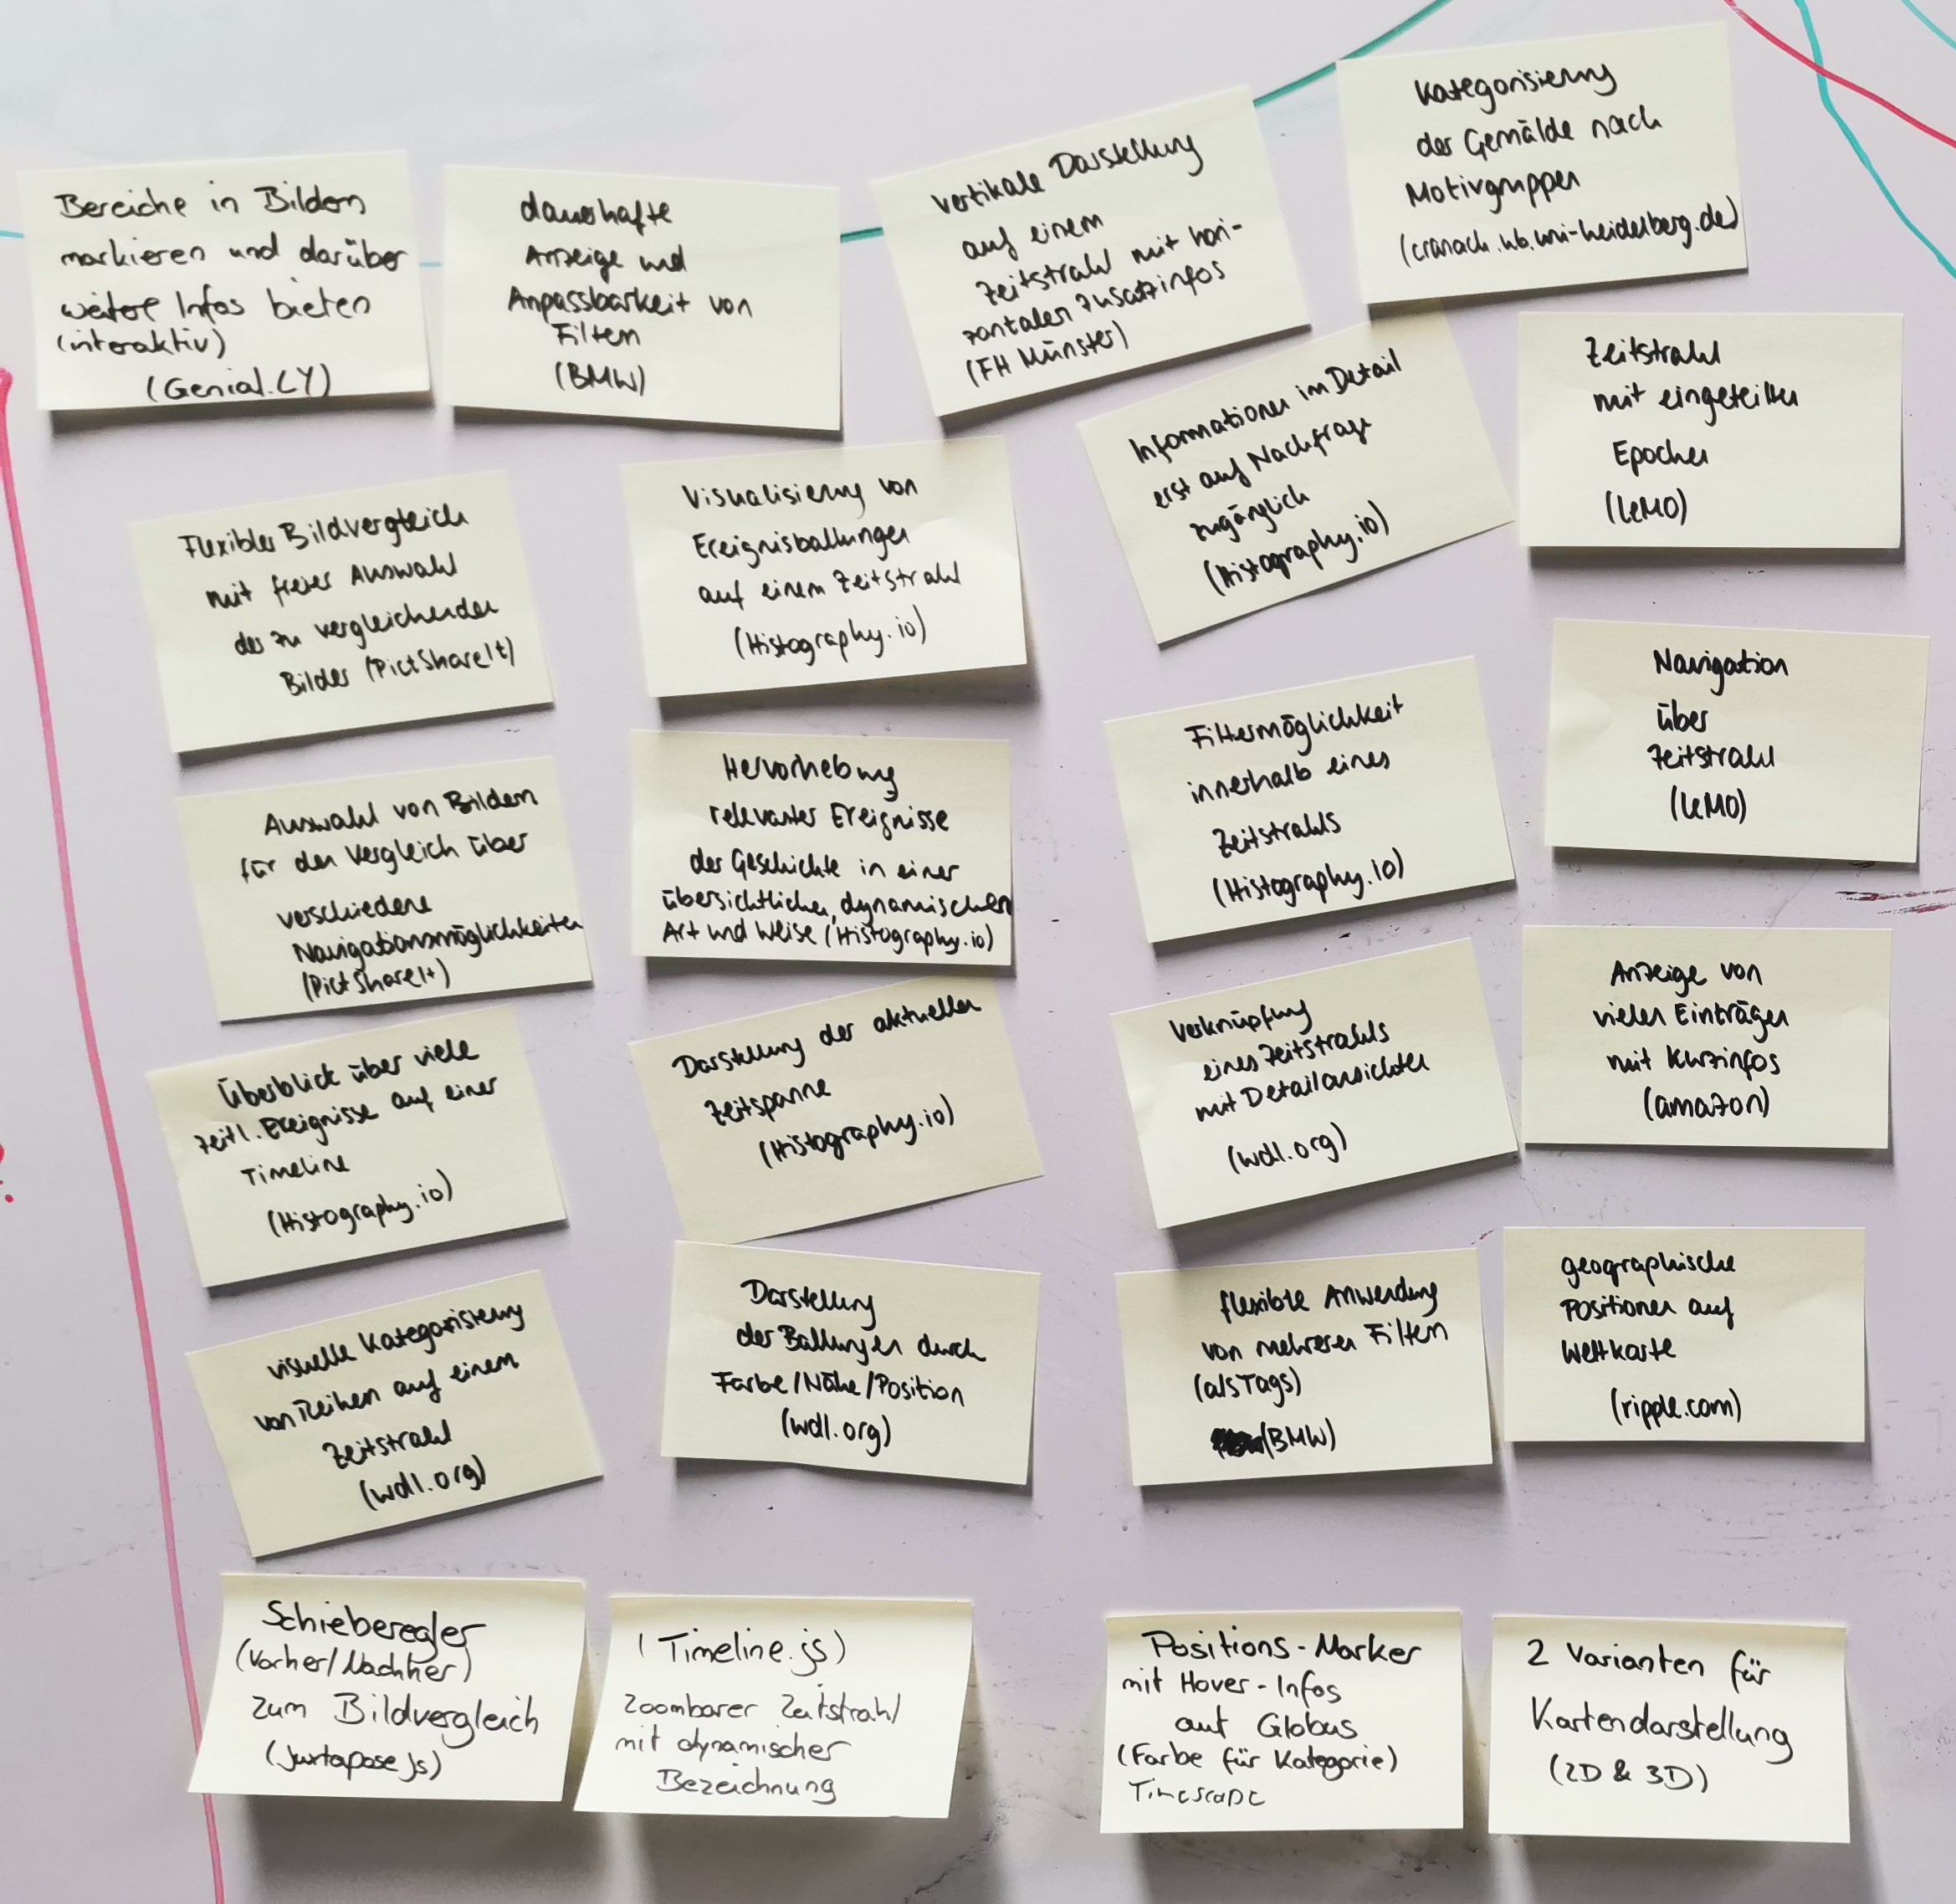 Bereiche in Bildern
markieren und darüber
weitere Infos bieten
(interaktiv)
(Genial.LY)
dauerhafte
Anzeige und
Anpassbarkeit von
Filtern
(BMW)
vertikale Darstellung
auf einem
Zeitstrahl mit hori-
zontalen Zusatzinfos
(FH Münster)
Kategorisierung
der Gemälde nach
Motivgruppen
(cranach.ub.uni-heidelberg.de)
Flexibler Bildvergleich
mit freier Auswahl
der zu vergleichenden
Bilder (PictShareIt)
Visualisierung von
Ereignisballungen
auf einem Zeitstrahl
(Histography.io)
Informationen im Detail
erst auf Nachfrage
zugänglich
(Histography.io)
Zeitstrahl
mit eingeteilten
Epochen
(LeMO)
Auswahl von Bildern
für den Vergleich über
verschiedene
Navigationsmöglichkeiten
(PictShareIt)
Hervorhebung
relevanter Ereignisse
der Geschichte in einer
übersichtlichen, dynamischen
Art und Weise (Histography.io)
Filtermöglichkeit
innerhalb eines
Zeitstrahls
(Histography.io)
Navigation
über
Zeitstrahl
(LeMO)
Überblick über viele
zeitl. Ereignisse auf einer
Timeline
(Histography.io)
Darstellung der aktuellen
Zeitspanne
(Histography.io)
Verknüpfung
eines Zeitstrahls
mit Detailansichten
(wdl.org)
Anzeige von
vielen Einträgen
mit Kurzinfos
(amazon)
visuelle Kategorisierung
von Reihen auf einem
Zeitstrahl
(wdl.org)
Darstellung
der Ballungen durch
Farbe/Nähe/Position
(wdl.org)
flexible Anwendung
von mehreren Filtern
(als Tags)
(BMW)
geographische
Positionen auf
Weltkarte
(ripple.com)
Schieberegler
(Vorher/Nachher)
zum Bildvergleich
(Juxtapose js)
(Timeline.js)
Zoombarer Zeitstrahl
mit dynamischer
Bezeichnung
Positions-Marker
mit Hover-Infos
auf Globus
(Farbe für Kategorie)
Timescape
2 Varianten für
Kartendarstellung
(2D & 3D)